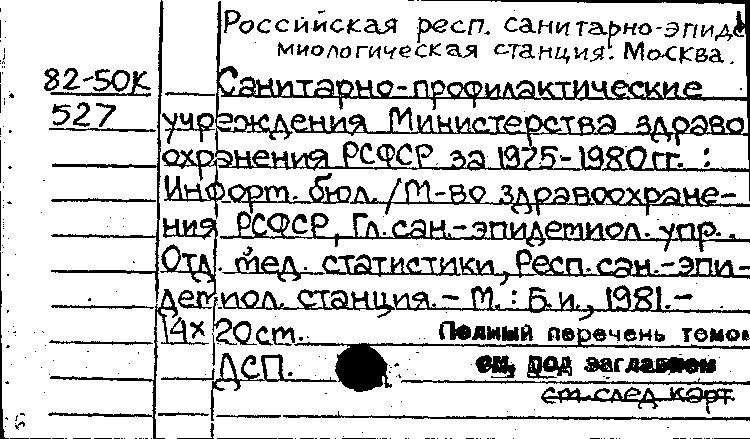 Российская респ. санитарно-эпиде
миологическая станция. Москва.
82-50К Санитарно-профилактические
527 учреждения Министерства здраво
охранения РСФСР за 1975-1980гг. :
Информ. бюл. / М-во здравоохране-
ния РСФСР, Гл. сан.-эпидемиол. упр.
Отд. мед. статистики, Респ. сан.-эпи-
демиол. станция. - М. : Б.и., 1981. -
14х20см. Полный перечень томов
ДСП. см. под заглавием
см. след карт.
6